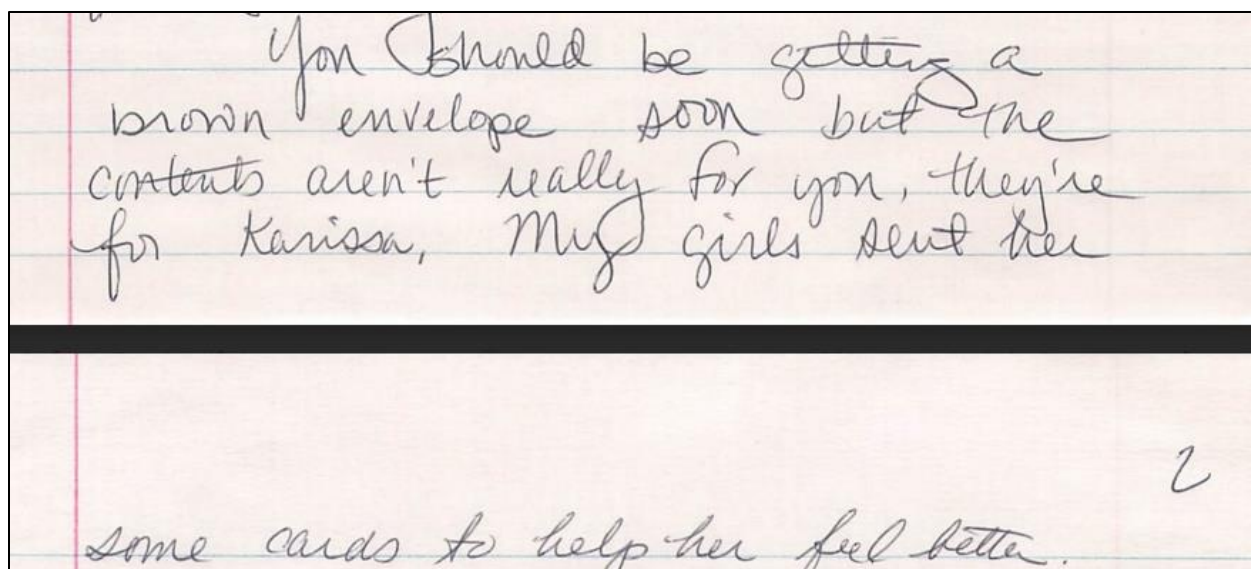 You should be getting a
brown envelope soon but the
contents aren't really for you, they're
for Karissa, My girls sent her
2
some cards to help her feel better.